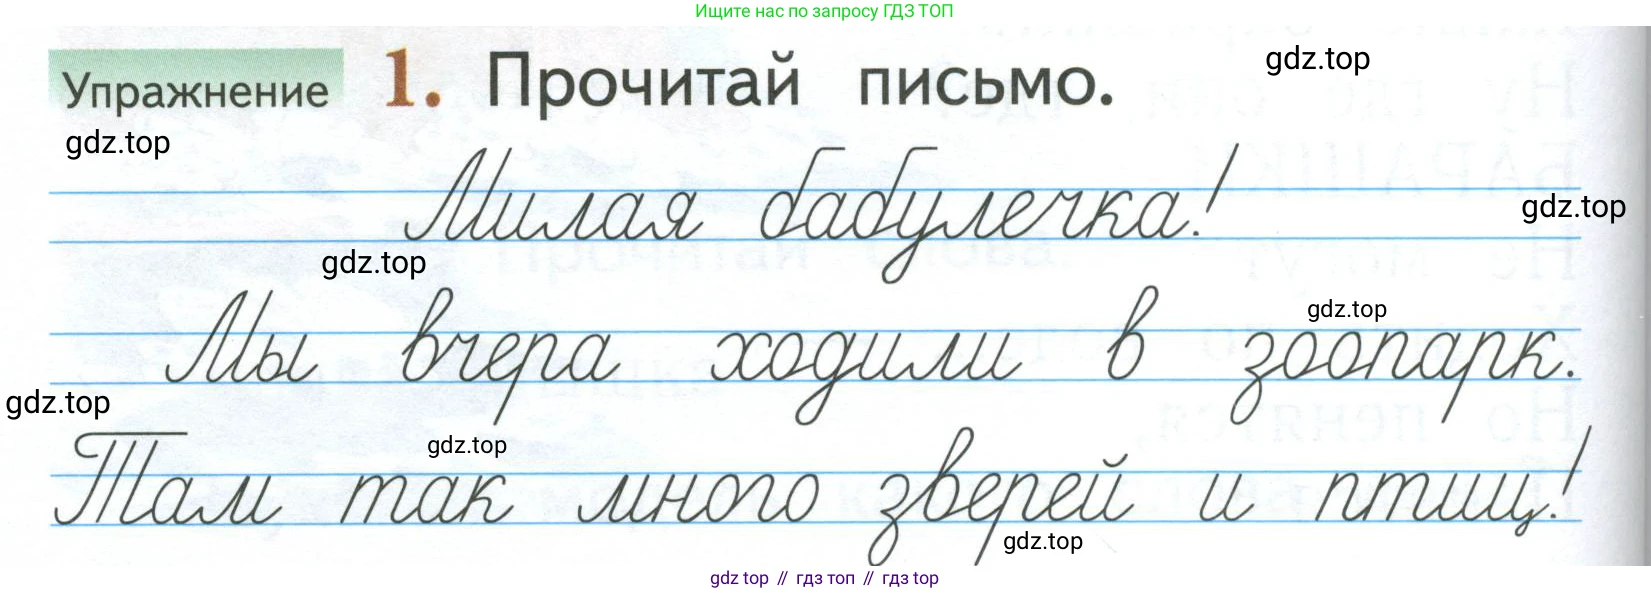 Ищите нас по запросу ГДЗ ТОП
Упражнение 1. Прочитай письмо.
gdz.top
gdz.top
Милая бабулечка!
gdz.top
gdz.top
Мы вчера ходили в зоопарк.
gdz.top
gdz.top
Там так много зверей и птиц!
gdz.top
gdz.top
gdz top // гдз топ // гдз top